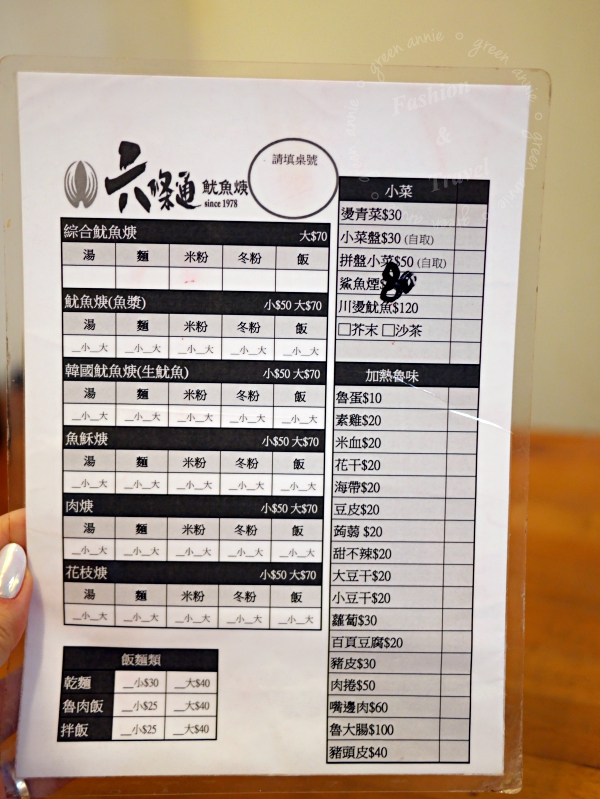 green annie o green annie o green annie
Fashion
&
Travel
六條通 魷魚焿
since 1978
請填桌號
綜合魷魚焿 大$70
湯 麵 米粉 冬粉 飯
魷魚焿(魚漿) 小$50 大$70
湯 麵 米粉 冬粉 飯
__小__大 __小__大 __小__大 __小__大 __小__大
韓國魷魚焿(生魷魚) 小$50 大$70
湯 麵 米粉 冬粉 飯
__小__大 __小__大 __小__大 __小__大 __小__大
魚酥焿 小$50 大$70
湯 麵 米粉 冬粉 飯
__小__大 __小__大 __小__大 __小__大 __小__大
肉焿 小$50 大$70
湯 麵 米粉 冬粉 飯
__小__大 __小__大 __小__大 __小__大 __小__大
花枝焿 小$50 大$70
湯 麵 米粉 冬粉 飯
__小__大 __小__大 __小__大 __小__大 __小__大
飯麵類
乾麵 __小$30 __大$40
魯肉飯 __小$25 __大$40
拌飯 __小$25 __大$40
小菜
燙青菜$30
小菜盤$30 (自取)
拼盤小菜$50 (自取)
鯊魚煙$80
川燙魷魚$120
□芥末 □沙茶
加熱魯味
魯蛋$10
素雞$20
米血$20
花干$20
海帶$20
豆皮$20
蒟蒻 $20
甜不辣$20
大豆干$20
小豆干$20
蘿蔔$30
百頁豆腐$20
豬皮$30
肉捲$50
嘴邊肉$60
魯大腸$100
豬頭皮$40